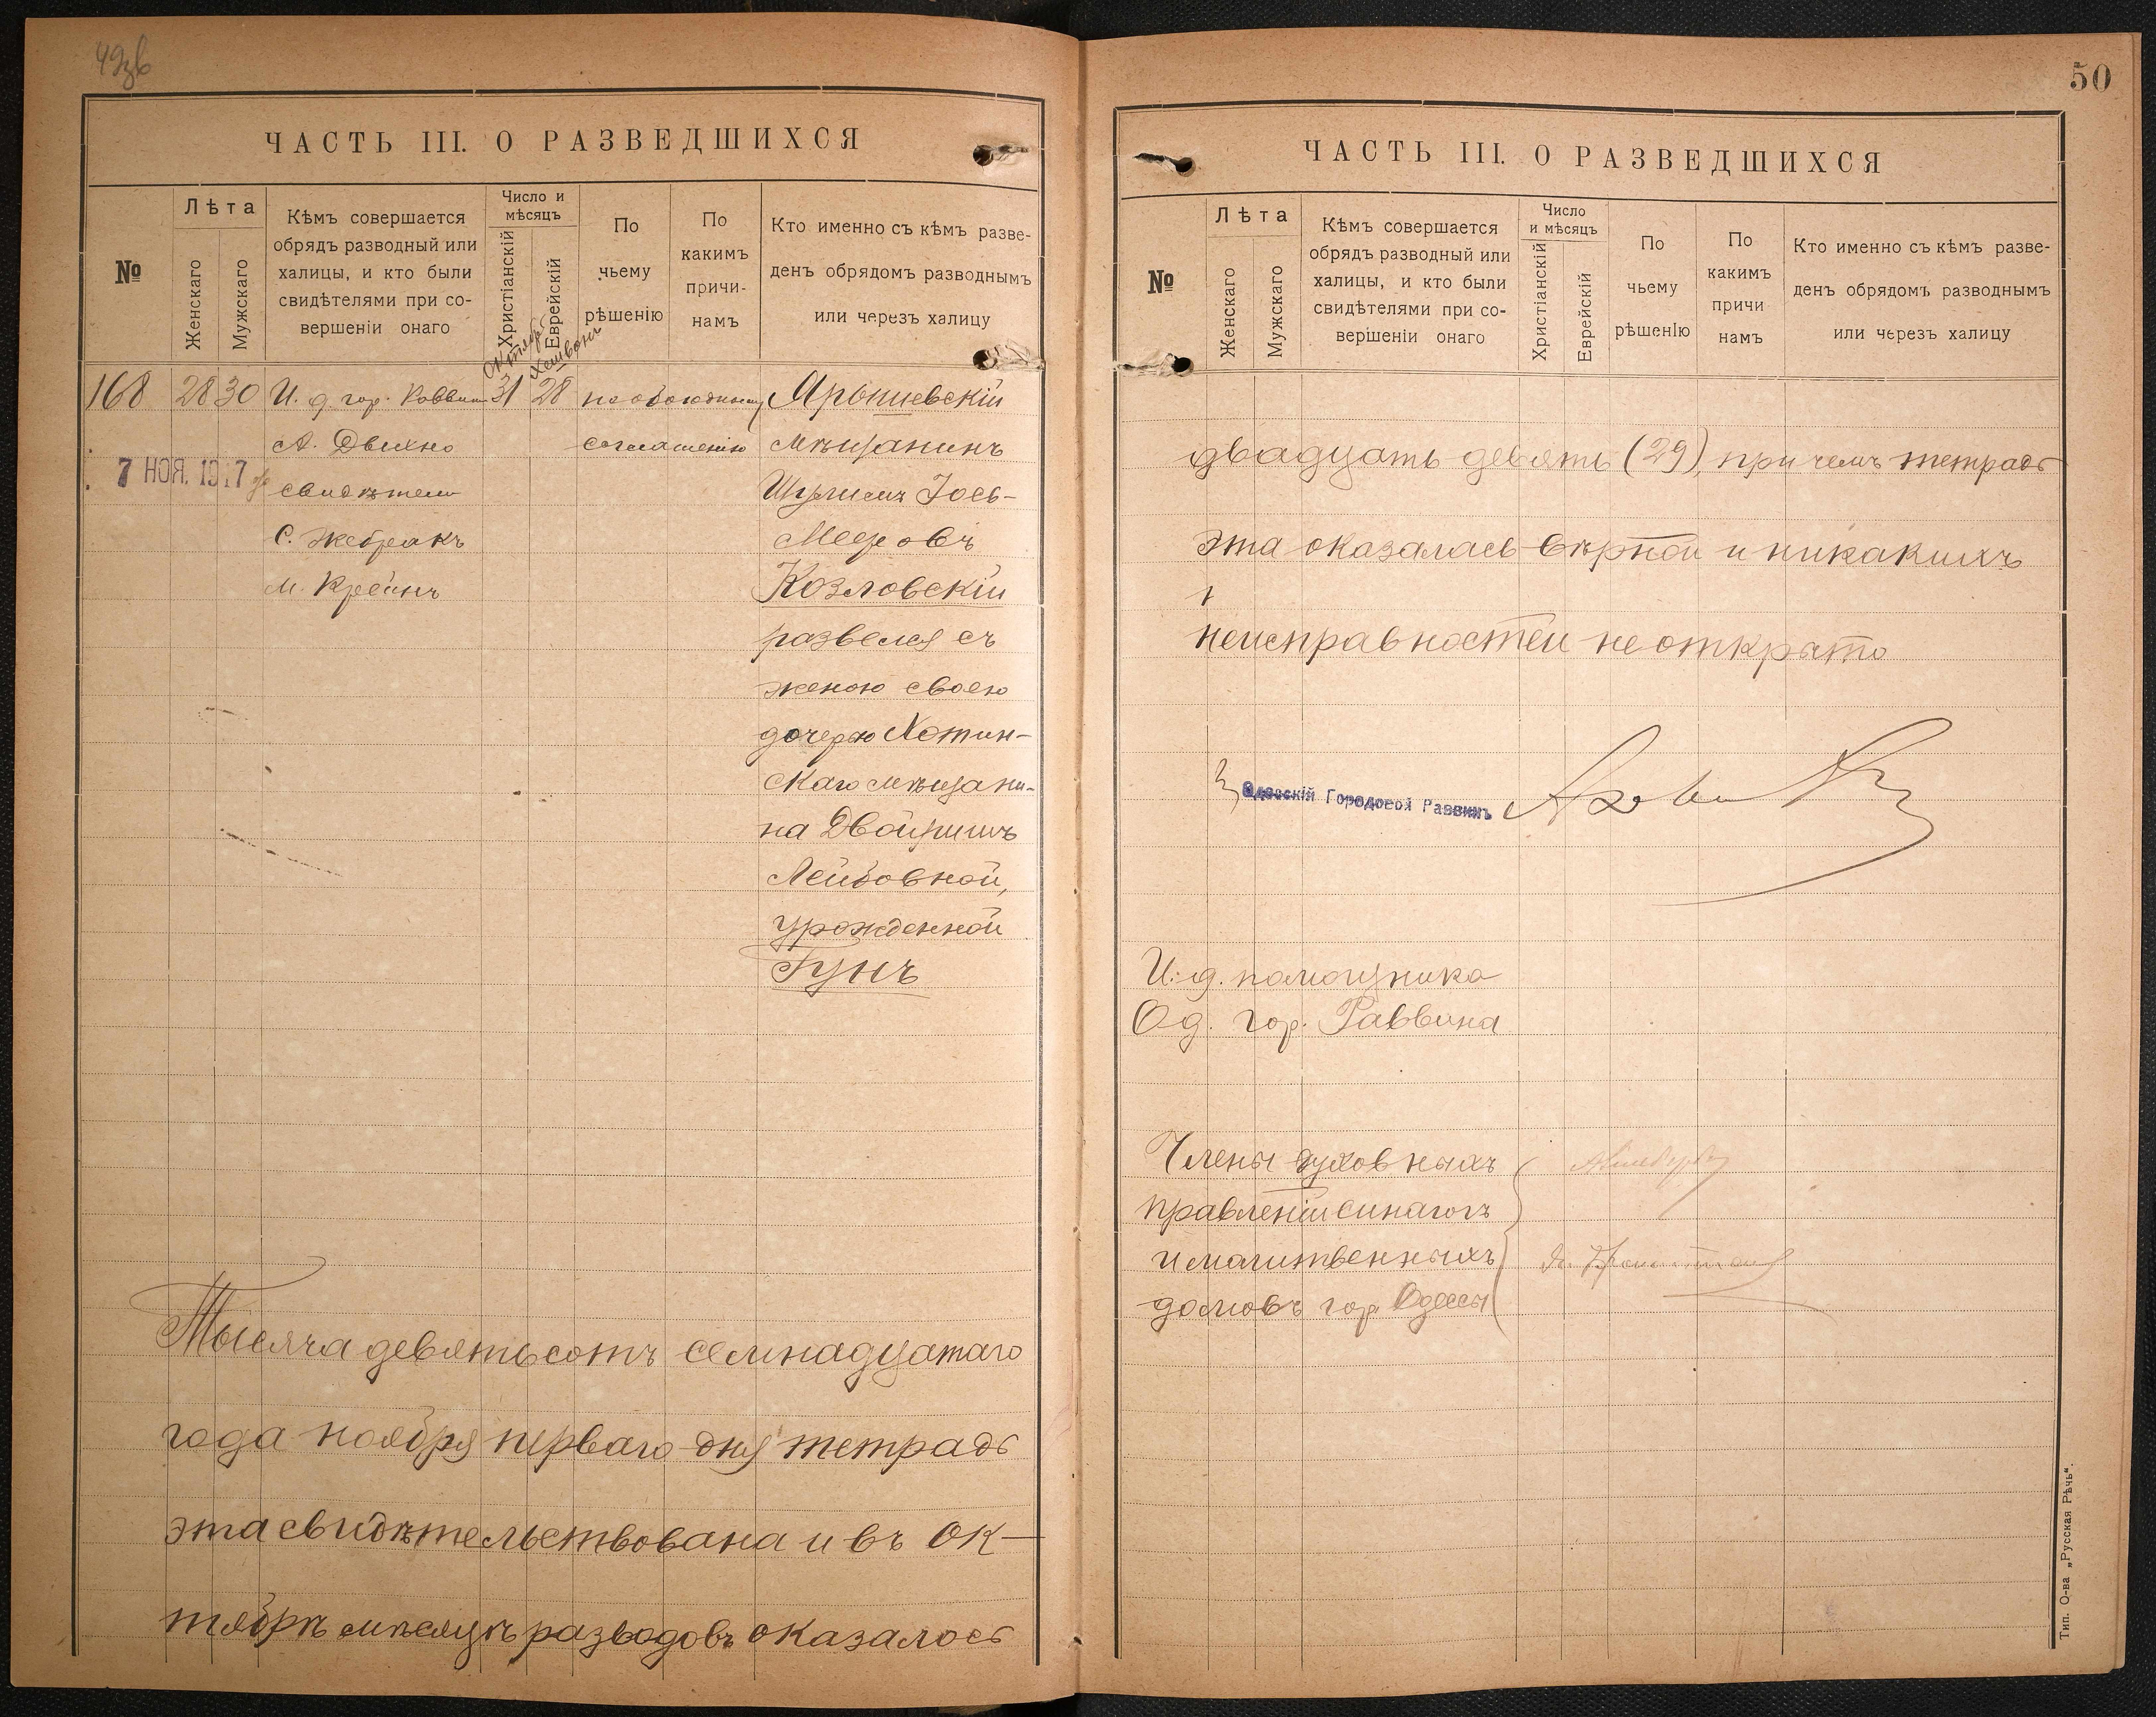 ЧАСТЬ III. О РАЗВЕДШИХСЯ
№
Лѣта
Женскаго
Мужскаго
Кѣмъ совершается
обрядъ разводный или
халицы, и кто были
свидѣтелями при со-
вершеніи онаго
Число и
мѣсяцъ
Христіанскій
Еврейскій
По
чьему
рѣшенію
По
какимъ
причи-
намъ
Кто именно съ кѣмъ разве-
денъ обрядомъ разводнымъ
или черезъ халицу
Октябр
Хешвонъ
168 28 30 И. д. гор. Раввин 31 28 по обоюдному Ярышевскій
А. Двихно соглашенію мѣщанинъ
7 НОЯ. 1917
свидѣтели Шулимъ Іось-
С. Жебракъ Мееровъ
М. Крейнъ Козловскій
развелся съ
женою своею
дочерью Хотин-
скаго мѣщани-
на Двойришъ
Лейбовной,
урожденной
Гунъ
Тысяча девятьсотъ семнадцатаго
года ноября перваго дня тетрадь
эта свидѣтельствована и въ ок-
тябрѣ мѣсяцѣ разводовъ оказалось
50
ЧАСТЬ III. О РАЗВЕДШИХСЯ
№
Лѣта
Женскаго
Мужскаго
Кѣмъ совершается
обрядъ разводный или
халицы, и кто были
свидѣтелями при со-
вершеніи онаго
Число
и мѣсяцъ
Христіанскій
Еврейскій
По
чьему
рѣшенІю
По
какимъ
причи
намъ
Кто именно съ кѣмъ разве-
денъ обрядомъ разводнымъ
или черезъ халицу
двадцать девять (29), при чемъ тетрадь
эта оказалась вѣрной и никакихъ
неисправностей не открыто
Одесскій Городовой Раввинъ
И. д. помощника
Од. гор. Раввина
Члены духовныхъ
правленій синагогъ
и молитвенныхъ
домовъ гор. Одессы
Тип. О-ва „Русская Рѣчь“.